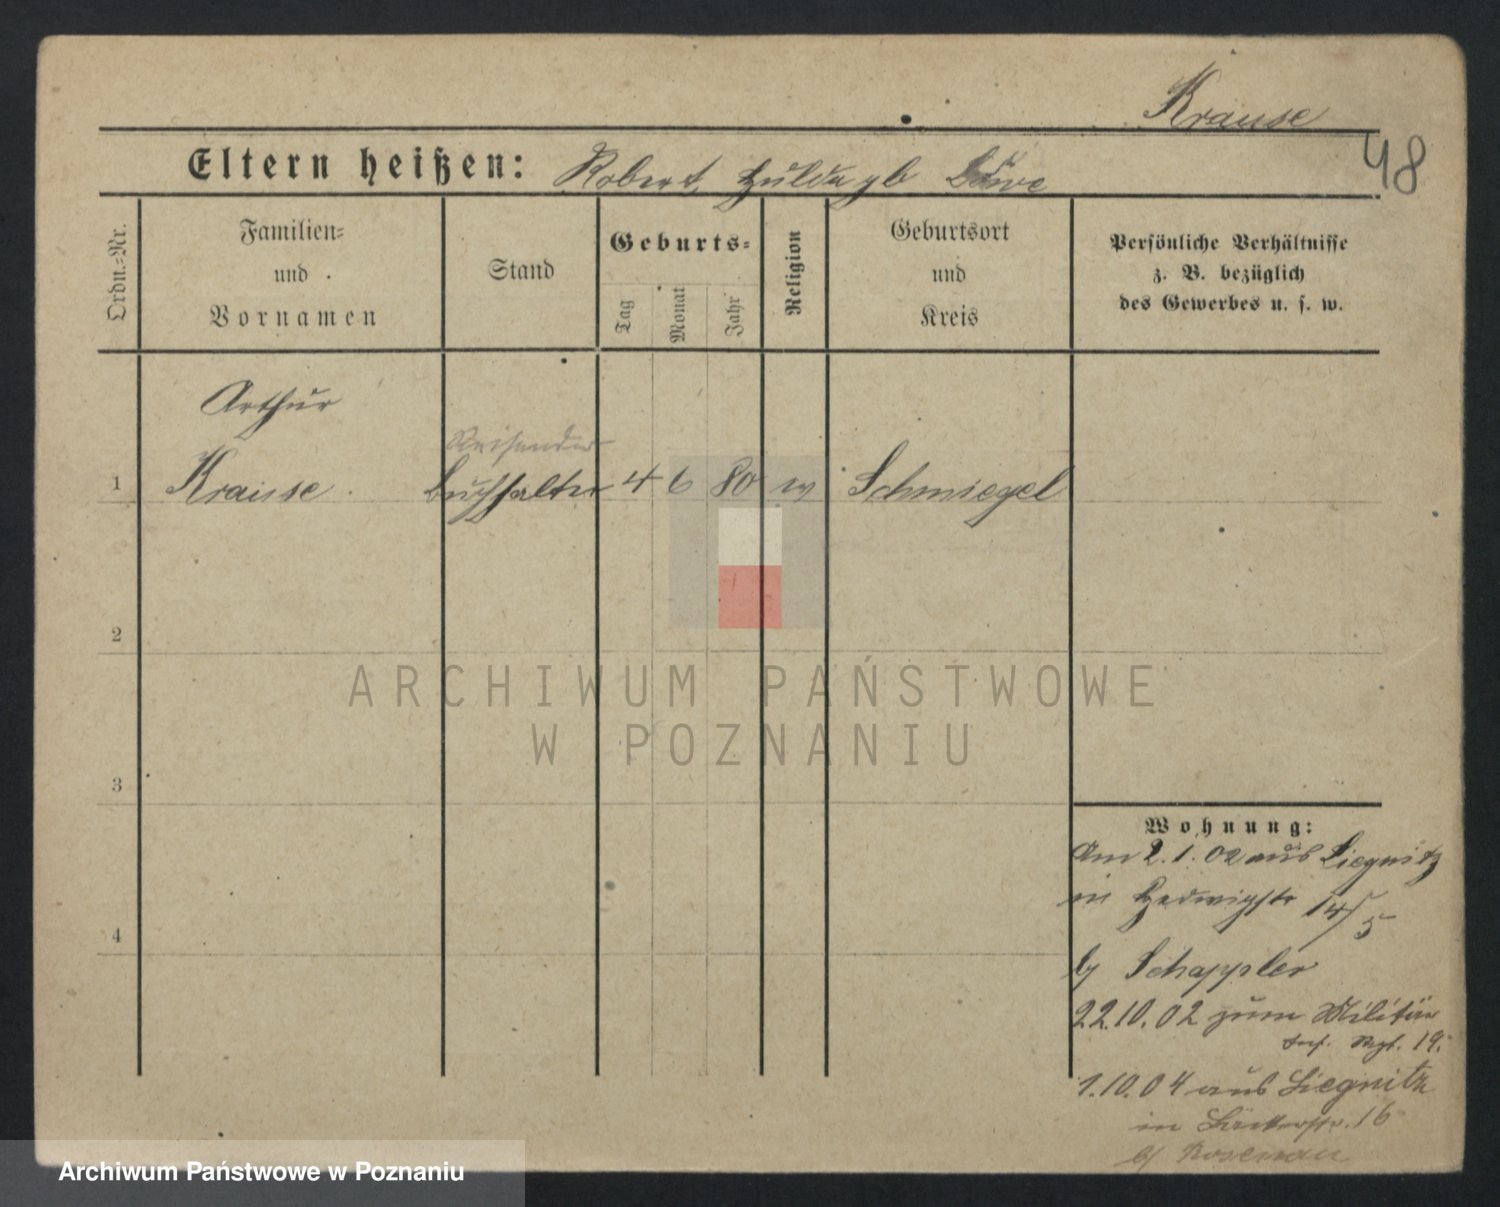 Krause
48
Eltern heißen: Robert, Hulda gb
Ordn.-Nr.
Familien-
und
Vornamen
Stand
Geburts-
Tag
Monat
Jahr
Religion
Geburtsort
und
Kreis
Persönliche Verhältnisse
z. B. bezüglich
des Gewerbes u. s. w.
Arthur
Reisender
1 Krause Buchhalter 4 6 80 Schmiegel
2
3
4
ARCHIWUM PAŃSTWOWE
W POZNANIU
Wohnung:
Am 2.1.02 aus Liegnitz
in Hedwigstr 14/5
b/ Schappler
22.10.02 zum Militär
Inf. Rgt. 19.
1.10.04 aus Liegnitz
in Bäckerstr. 16
b/ Rosenau
Archiwum Państwowe w Poznaniu